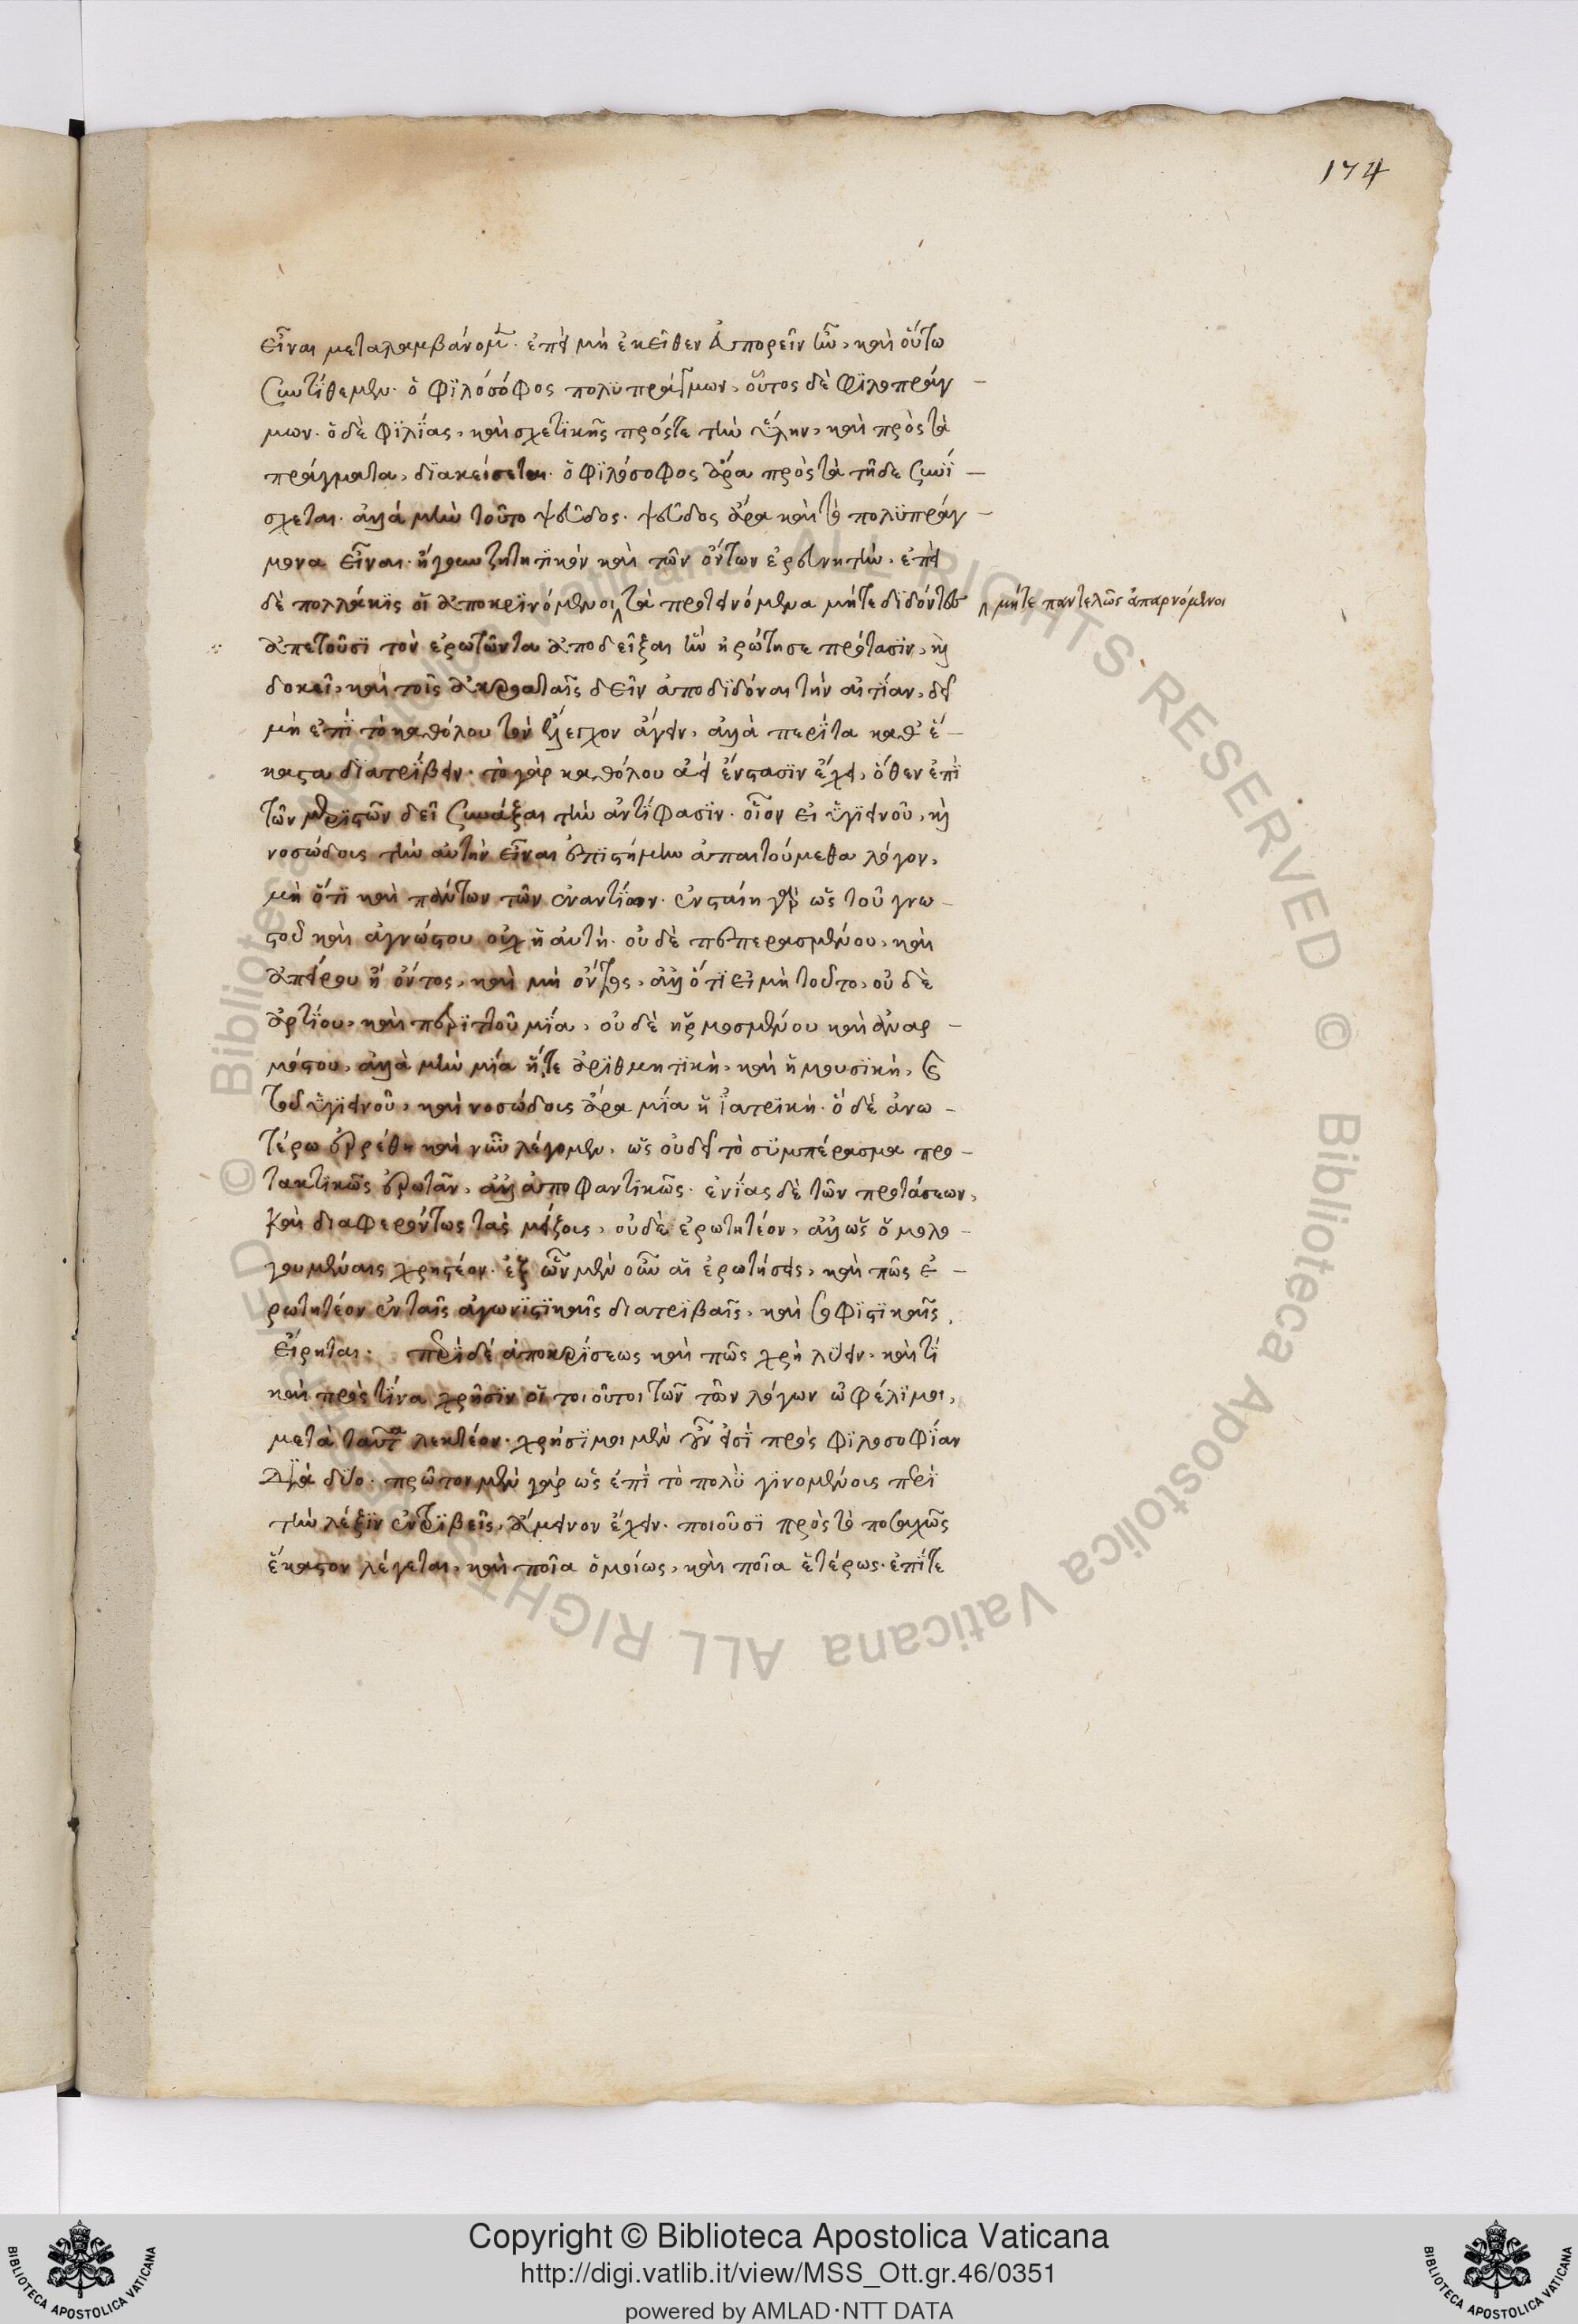 174
εἶναι μεταλαμβάνομεν. ἐπεὶ μὴ ἐκεῖθεν ἀπορεῖν ἦν, καὶ οὕτω
συντίθεμεν. ὁ φιλόσοφος πολυπράγμων, οὗτος δὲ φιλοπράγ-
μων. ὁ δὲ φιλίας, καὶ σχετικῆς πρός τε τὴν ὕλην, καὶ πρὸς τὰ
πράγματα, διακείσεται. ὁ φιλόσοφος ἄρα πρὸς τὰ τῆδε
σχεται. ἀλλὰ μὴν τοῦτο ψεῦδος. ψεῦδος ἄρα καὶ τὸ πολυπράγ-
μονα εἶναι. ἤγουν ζητητικὸν καὶ τῶν ὄντων ἐρευνητὴν. ἐπεὶ
δὲ πολλάκις οἱ ἀποκρινόμενοι τὰ προτεινόμενα μήτε διδόντες
μήτε παντελῶς ἀπαρνόμενοι
ἀπετοῦσι τὸν ἐρωτῶντα ἀποδεῖξαι ἣν ἠρώτησε πρότασιν, καὶ
δοκεῖ, καὶ τοῖς ἀκροαταῖς δεῖν ἀποδιδόναι τὴν αἰτίαν, δεῖ
μὴ ἐπὶ τὸ καθόλου τὸν ἔλεγχον ἄγειν, ἀλλὰ περὶ τὰ καθ' ἕ-
καστα διατρίβειν. τὸ γὰρ καθόλου ἀεὶ ἔνστασιν ἔχει, ὅθεν ἐπὶ
τῶν μεριστῶν δεῖ συνάξαι τὴν ἀντίφασιν. οἷον εἰ ὑγιεινοῦ, καὶ
νοσώδους τὴν αὐτὴν εἶναι ἐπιστήμην ἀπαιτούμεθα λόγον,
μὴ ὅτι καὶ πάντων τῶν ἐναντίων. ἐνσταίη γὰρ ὡς τοῦ γνω-
στοῦ καὶ ἀγνώστου οὐχ ἡ αὐτή. οὐδὲ πεπερασμένου, καὶ
ἀπείρου ἢ ὄντος, καὶ μὴ ὄντος, ἀλλ' ὅτι εἰ μὴ τοῦτο, οὐδὲ
ἀρτίου, καὶ περιττοῦ μία, οὐδὲ ἡρμοσμένου καὶ ἀναρ-
μόστου, ἀλλὰ μὴν μία ἥ τε ἀριθμητικὴ, καὶ ἡ μουσικὴ, καὶ
τοῦ ὑγιεινοῦ, καὶ νοσώδους ἄρα μία ἡ ἰατρική. ὃ δὲ ἀνω-
τέρω ἐρρέθη καὶ νῦν λέγομεν, ὡς οὐδεὶ τὸ συμπέρασμα προ-
τακτικῶς ἐρωτᾶν, ἀλλ' ἀποφαντικῶς. ἐνίας δὲ τῶν προτάσεων,
καὶ διαφερόντως τὰς μείζους, οὐδὲ ἐρωτητέον, ἀλλ' ὡς ὁμολο-
γουμέναις χρηστέον. ἐξ ὧν μὲν οὖν αἱ ἐρωτήσεις, καὶ πῶς ἐ-
ρωτητέον ἐν ταῖς ἀγωνιστικαῖς διατριβαῖς, καὶ σοφιστικαῖς,
εἴρηται. περὶ δὲ ἀποκρίσεως καὶ πῶς χρὴ λύειν. καὶ τί
καὶ πρὸς τίνα χρῆσιν οἱ τοιοῦτοι τῶν λόγων ὠφέλιμοι,
μετὰ ταῦτα λεκτέον. χρήσιμοι μὲν οὖν εἰσὶ πρὸς φιλοσοφίαν
διὰ δύο. πρῶτον μὲν γὰρ ὡς ἐπὶ τὸ πολὺ γινομένους περὶ
τὴν λέξιν ἐντριβεῖς, ἄμεινον ἔχειν. ποιοῦσι πρὸς τὸ ποσαχῶς
ἕκαστον λέγεται, καὶ ποῖα ὁμοίως, καὶ ποῖα ἑτέρως. ἐπί τε
Copyright © Biblioteca Apostolica Vaticana
http://digi.vatlib.it/view/MSS_Ott.gr.46/0351
powered by AMLAD·NTT DATA